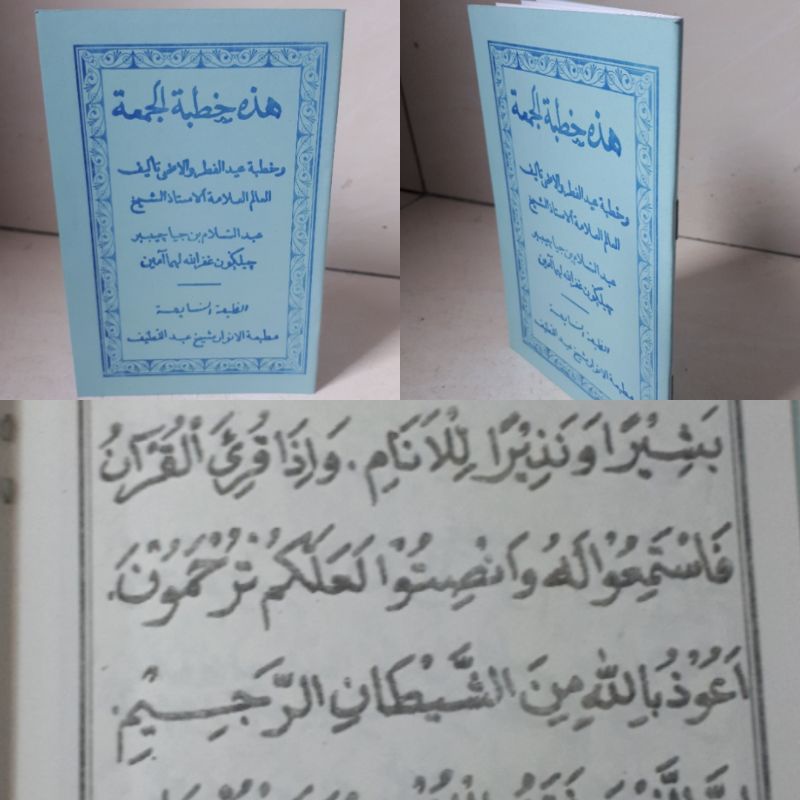 هذه خطبة الجمعة
وخطبة عيد الفطر والاضحى تأليف
العالم العلامة الاستاذ الشيخ
عبد السلام بن جيا چيبير
چيلكون غفر الله لهما آمين
الطبعة السابعة
مطبعة الانوار شيخ عبد اللطيف
هذه خطبة الجمعة
وخطبة عيد الفطر والاضحى تأليف
العالم العلامة الاستاذ الشيخ
عبد السلام بن جيا چيبير
چيلكون غفر الله لهما آمين
الطبعة السابعة
مطبعة الانوار شيخ عبد اللطيف
بَشِيْرًا وَنَذِيْرًا لِلْاَنَامِ. وَاِذَا قُرِئَ الْقُرْآنُ
فَاسْتَمِعُوْا لَهُ وَاَنْصِتُوْا لَعَلَّكُمْ تُرْحَمُوْنَ.
اَعُوْذُ بِاللّٰهِ مِنَ الشَّيْطَانِ الرَّجِيْمِ.